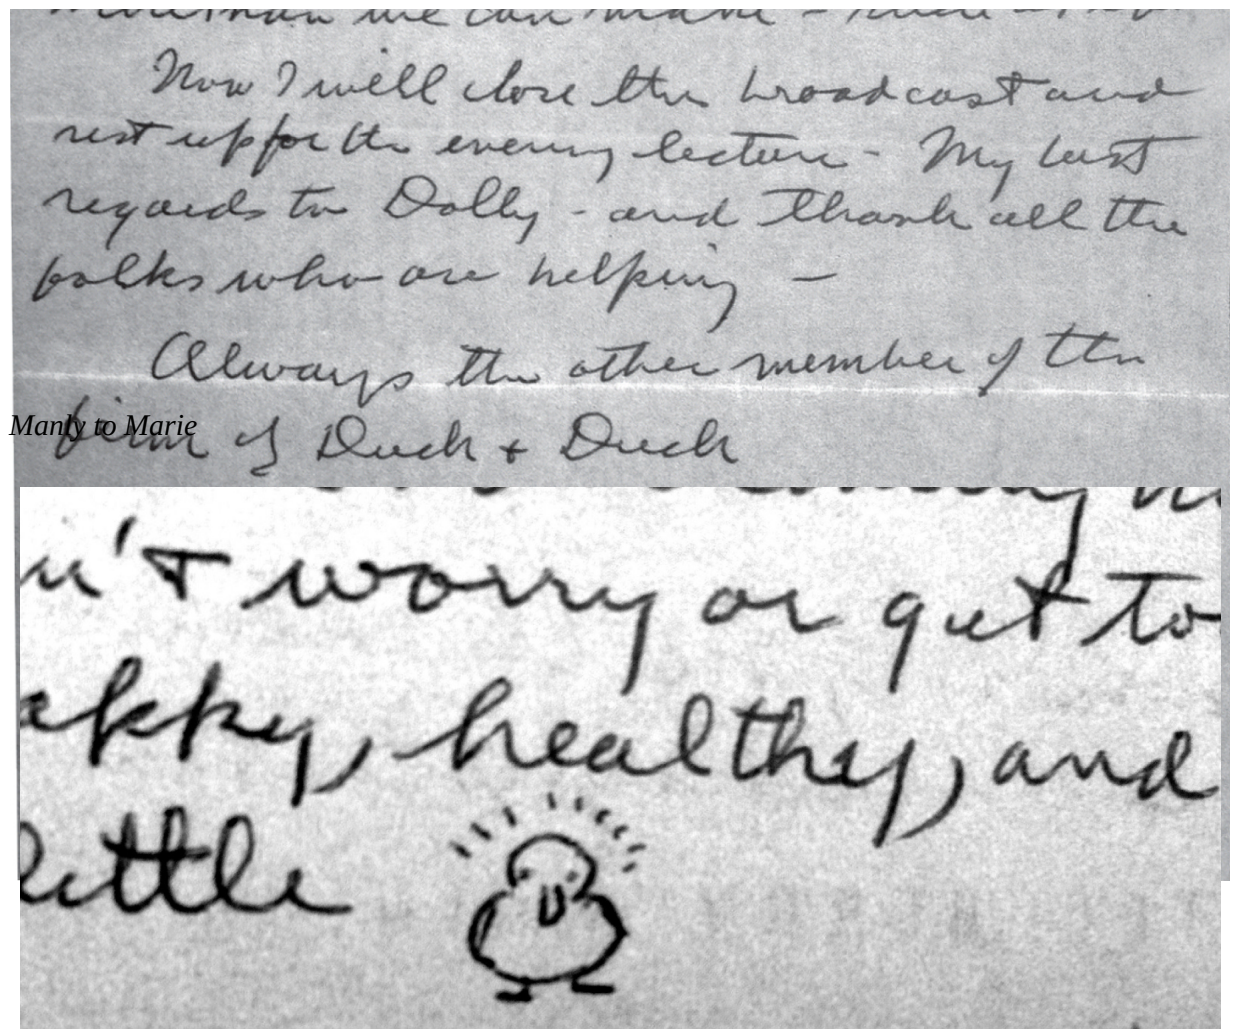 more than we can make -
Now I will close this broadcast and
rest up for the evening lecture - My best
regards to Dolly - and thank all the
folks who are helping -
Always the other member of the
firm of Duck + Duck
Manly to Marie
n't worry or get to
appy, healthy, and
little